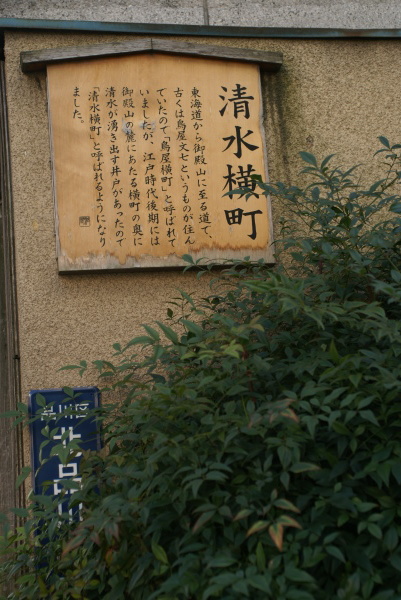 清水横町
東海道から御殿山に至る道で、
古くは鳥屋文七というものが住ん
でいたので「鳥屋横町」と呼ばれて
いましたが、江戸時代後期には
御殿山の麓にあたる横町の奥に
清水が湧き出す井戸があったので
「清水横町」と呼ばれるようになり
ました。